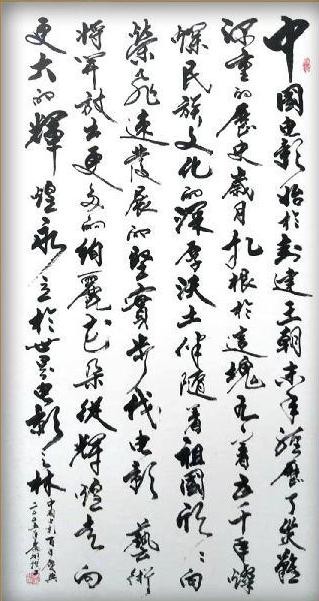 中國电影始於封建王朝末年經歷了災難
深重的歷史歲月扎根於這塊有着五千年燦
燦民族文化的深厚沃土伴随着祖國欣欣向
榮飛速發展的堅實步伐电影藝術
將軍放出更多的绚麗花朵從輝煌走向
更大的輝煌永立於世界电影之林